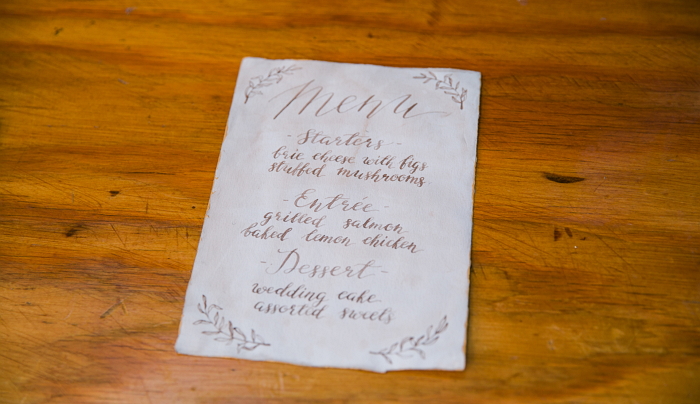 menu
- Starters -
brie cheese with figs
stuffed mushrooms
- Entrée -
grilled salmon
baked lemon chicken
- Dessert -
wedding cake
assorted sweets